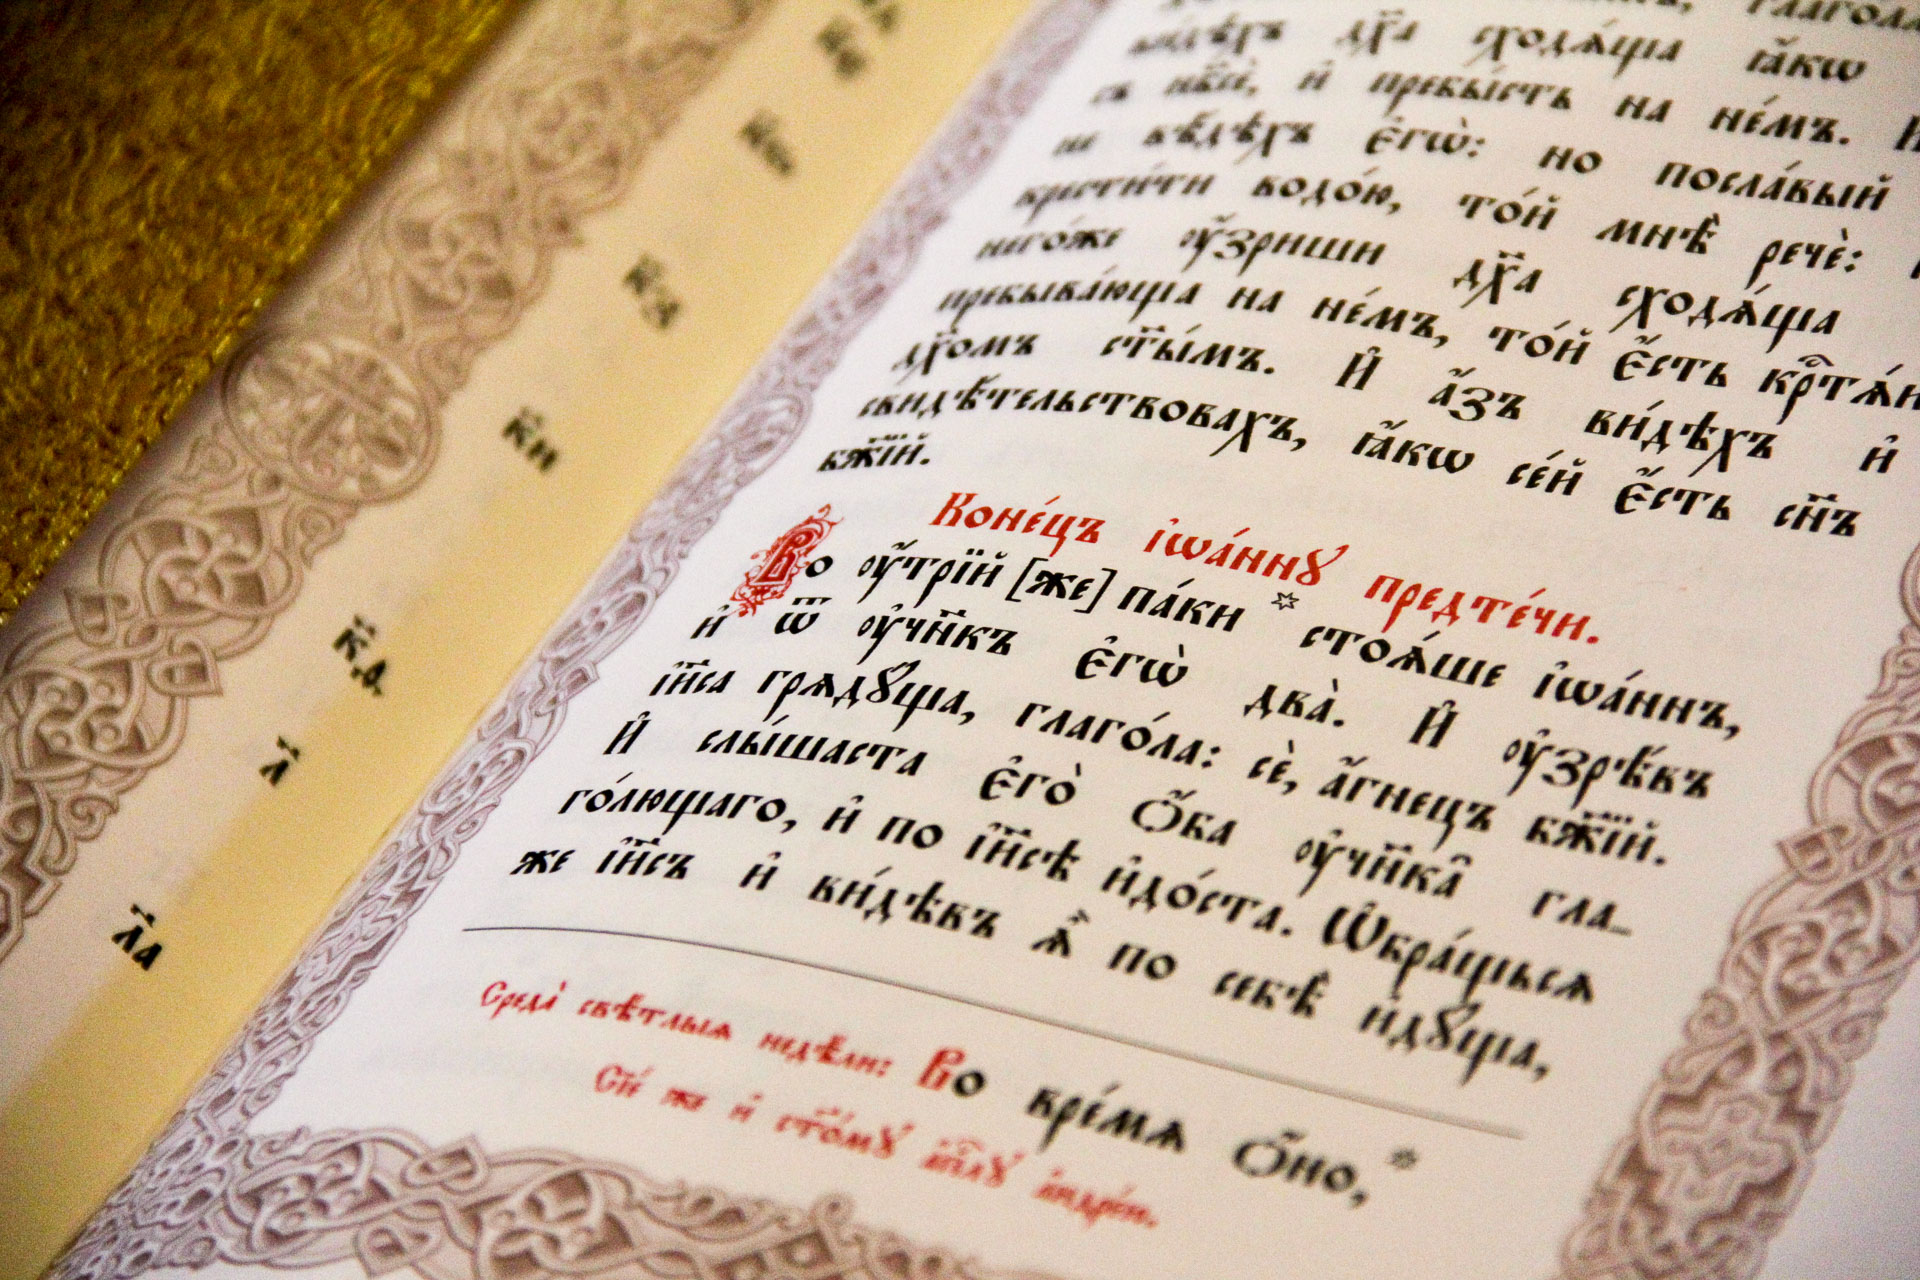 ви́дѣхъ дх҃а сходѧ́ща ꙗ҆́кѡ
съ нб҃сѐ, и҆ пребы́сть на не́мъ.
не вѣ́дѣхъ є҆гѡ̀: но посла́вый
крести́ти водо́ю, то́й мнѣ̀ речѐ:
него́же ᲂу҆́зриши дх҃а сходѧ́ща
пребыва́юща на не́мъ, то́й є҆́сть
дх҃омъ ст҃ы́мъ. И҆ а҆́зъ ви́дѣхъ и҆
свидѣ́тельствовахъ, ꙗ҆́кѡ се́й є҆́сть сн҃ъ
бж҃їй.
Коне́цъ і҆ѡа́ннꙋ предте́чи.
Во ᲂу҆́трїй [же] па́ки * стоѧ́ше і҆ѡа́ннъ,
и҆ ѿ ᲂу҆чн҃къ є҆гѡ̀ два̀. И҆ ᲂу҆зрѣ́въ
і҆и҃са грѧдꙋ́ща, глаго́ла: сѐ, а҆́гнецъ бж҃їй.
И҆ слы́шаста є҆го̀ ѻ҆́ба ᲂу҆чн҃ка̑ гла-
го́лющаго, и҆ по і҆и҃сѣ и҆до́ста. Ѡ҆бра́щьсѧ
же і҆и҃съ и҆ ви́дѣвъ ѧ҆̀ по себѣ̀ и҆дꙋ́ща,
Среда̀ свѣ́тлыѧ недѣ́ли: Во вре́мѧ ѻ҆́но, *
Сїѐ же и҆ ст҃о́мꙋ а҆пⷭ҇лꙋ а҆ндре́ю.
к҃ꙁ
к҃и
к҃ѳ
л҃
л҃а